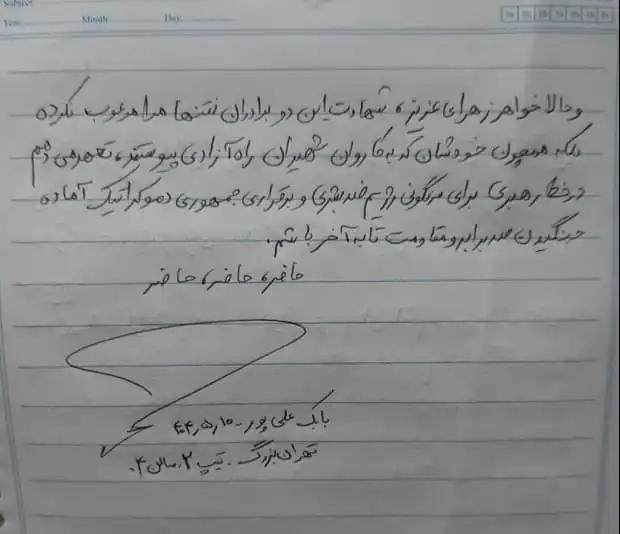 Subject:
Year: Month: Day:
و حالا خواهر زهرای عزیز، شهادت این دو برادران نتنها مرا مرعوب نکرده
بلکه همچون خودشان که به کاروان شهیران راه آزادی پیوستند، تعهد می دهم
در خط رهبری برای سرنگونی رژیم ضد بشری و برقراری جمهوری دموکراتیک آماده
جنگیدن صد برابر و مقاومت تا به آخر باشم.
حاضر، حاضر، حاضر
بابک علی پور - ۴۰۴٫۵٫۱۰
تهران بزرگ - تیپ ۲ - سالن ۴